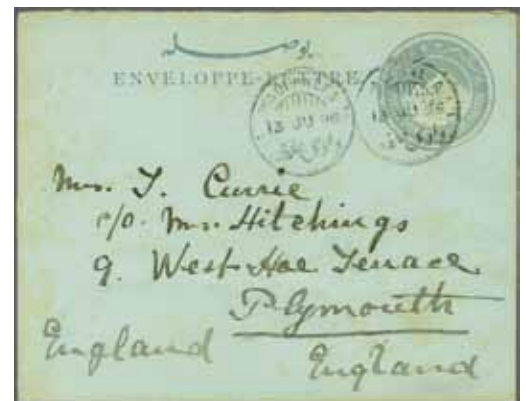 ENVELOPPE-LETTRE
13 JU 96
Mrs. T. Currie
c/o. Mrs. Hitchings
9. West Hoe Terrace
Plymouth
England
England